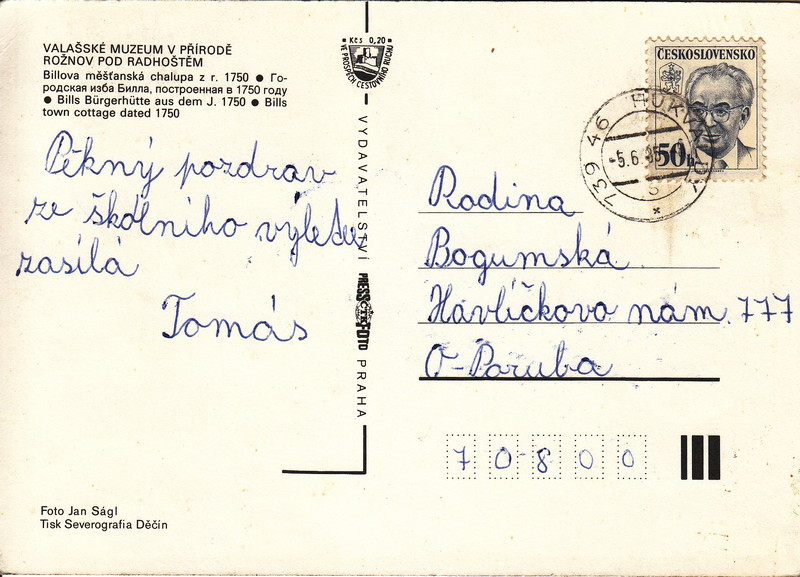 VALAŠSKÉ MUZEUM V PŘÍRODĚ
ROŽNOV POD RADHOŠTĚM
Billova měšťanská chalupa z r. 1750 ● Го-
родская изба Билла, построенная в 1750 году
● Bills Bürgerhütte aus dem J. 1750 ● Bills
town cottage dated 1750
Pěkný pozdrav
ze školního výletu
zasílá
Tomáš
Foto Jan Ságl
Tisk Severografia Děčín
Kčs 0,20
VE PROSPĚCH CESTOVNÍHO RUCHU
VYDAVATELSTVÍ PRESSFOTO PRAHA
ČTK
ČESKOSLOVENSKO
50h
739 46
-5.6.
Rodina
Bogumská
Havlíčkovo nám. 777
O-Poruba
70800